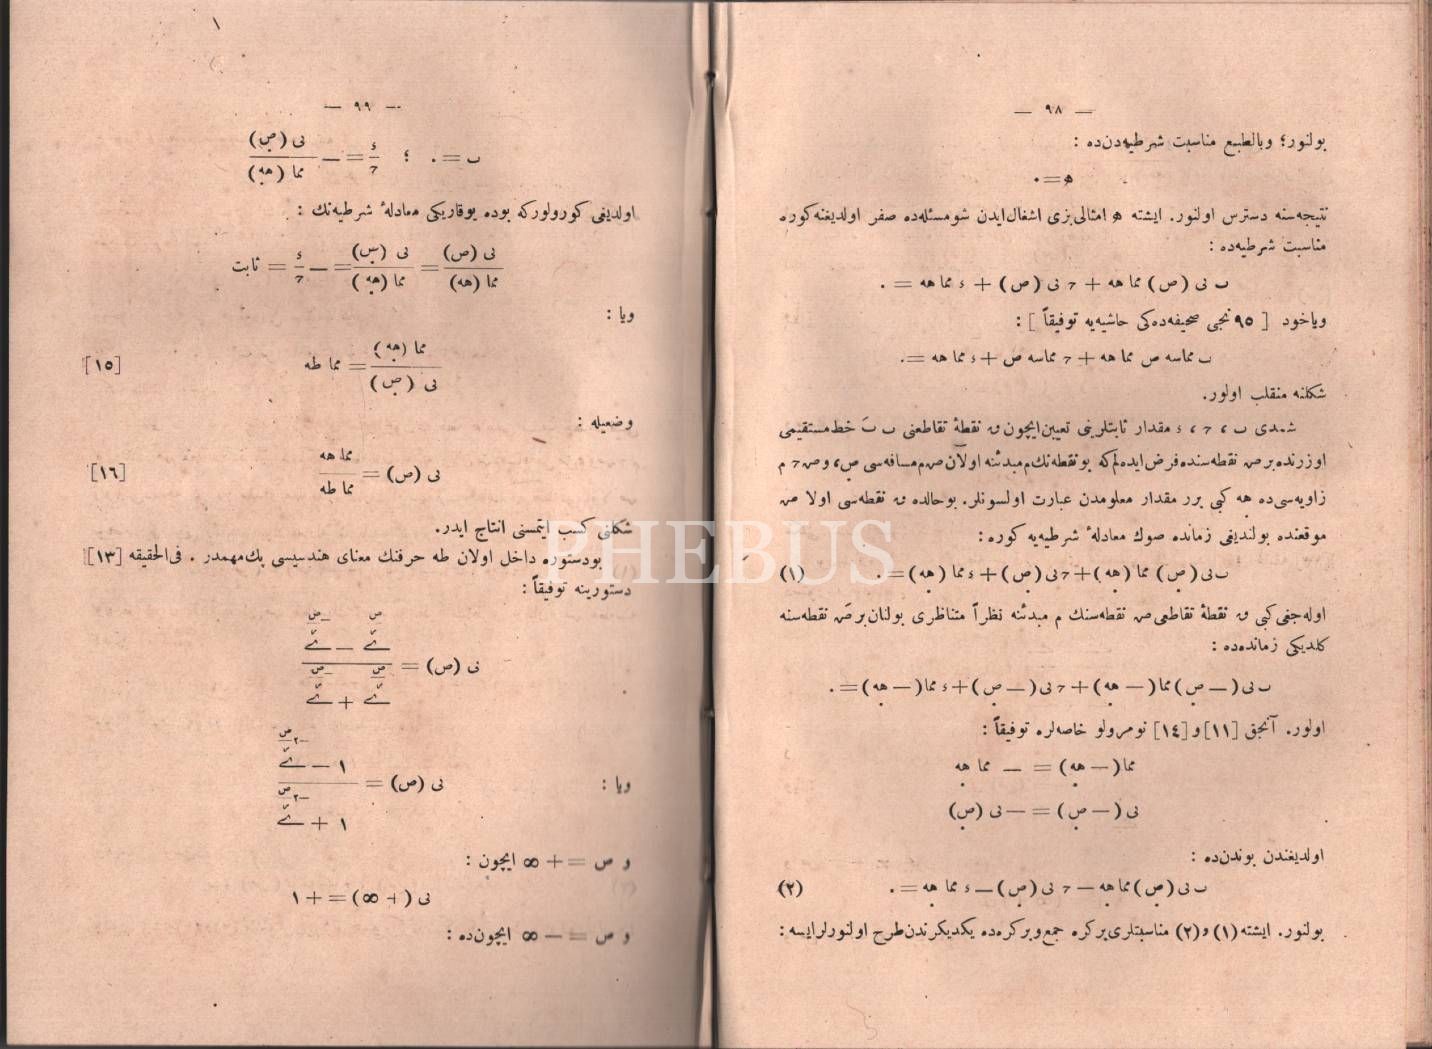 — ٩٨ —
بولنور؛ وبالطبع مناسبت شرطيه‌دن‌ده :
ه‍ = ٠
نتيجه‌سنه دسترس اولنور. ايشته ه‍ امثالی بزی اشغال ايدن شو مسئله‌ده صفر اولديغنه كوره
مناسبت شرطيه‌ده :
ب نى (ص) مما هه + ح نى (ص) + ء مما هه = ٠
وياخود [ ٩٥ نجی صحيفه‌ده‌كی حاشيه‌يه توفيقاً ] :
ب مماسه ص مما هه + ح مماسه ص + ء مما هه = ٠
شكلنه منقلب اولور.
شمدی ب ، ح ، ء مقدار ثابتلرينی تعيين ايچون نقطهٔ تقاطعنی خط مستقيمی
اوزرنده بر نقطه‌سنده فرض ايده‌لم كه بو نقطه‌نك م مبدئنه اولان مسافه‌سی
زاويه‌سی ده هه كبی برر مقدار معلومدن عبارت اولسونلر. بوحالده نقطه‌سی اولا
موقعنده بولنديغی زمانده صوك معادلهٔ شرطيه‌يه كوره :
ب نى (ص) مما (هه) + ح نى (ص) + ء مما (هه) = ٠ (١)
اوله‌جغی كبی نقطهٔ تقاطعی نقطه‌سنك م مبدئنه نظراً متناظری بولنان بر نقطه‌سنه
كلديكی زمانده‌ده :
ب نى (— ص) مما (— هه) + ح نى (— ص) + ء مما (— هه) = ٠
اولور. آنجق [١١] و [١٤] نومرولو خاصه‌لره توفيقاً :
مما (— هه) = — مما هه
نى (— ص) = — نى (ص)
اولديغندن بوندن‌ده :
ب نى (ص) مما هه — ح نى (ص) — ء مما هه = ٠ (٢)
بولنور. ايشته (١) و (٢) مناسبتلری بركره جمع و بركره‌ده يكديكرندن طرح اولنورلرايسه :
— ٩٩ —
ب = ٠ ؛ ء/ح = — نى (ص)/مما (هه)
اولديغی كورولوركه بوده يوقاريكی معادلهٔ شرطيه‌نك :
نى (ص)/مما (هه) = نى (ص)/مما (هه) = — ء/ح = ثابت
ويا :
مما (هه)/نى (ص) = مما طه [١٥]
وضعيله :
نى (ص) = مما هه/مما طه [١٦]
شكلنی كسب ايتمسنی انتاج ايدر.
بودستوره داخل اولان طه حرفنك معنای هندسيسی پك مهمدر . فی‌الحقيقه [١٣]
دستورينه توفيقاً :
نى (ص) =
ويا : نى (ص) =
و ص = + ∞ ايچون :
نى (+ ∞) = + ١
و ص = — ∞ ايچون‌ده :
PHEBUS